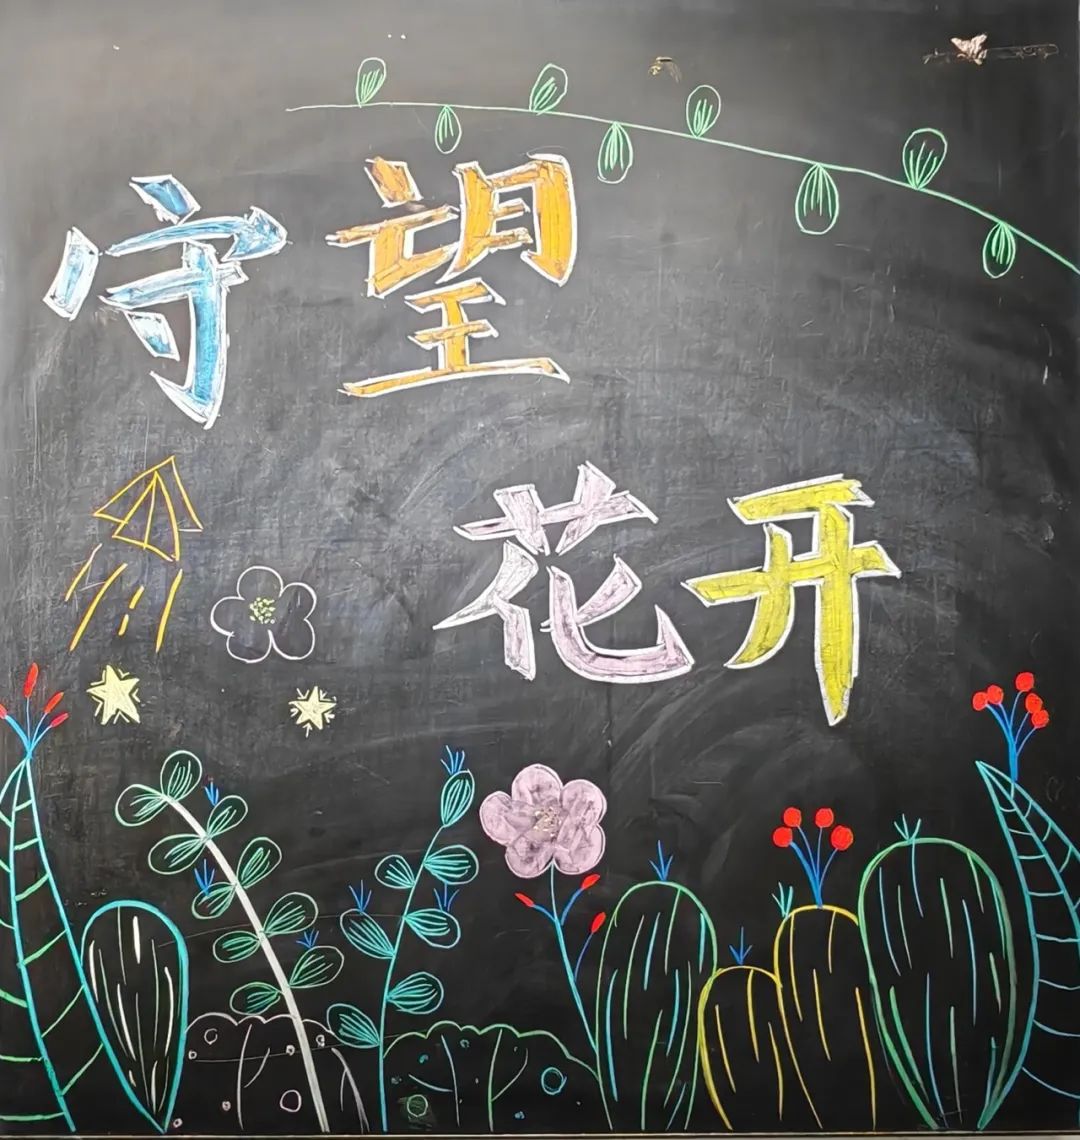 守望
花开